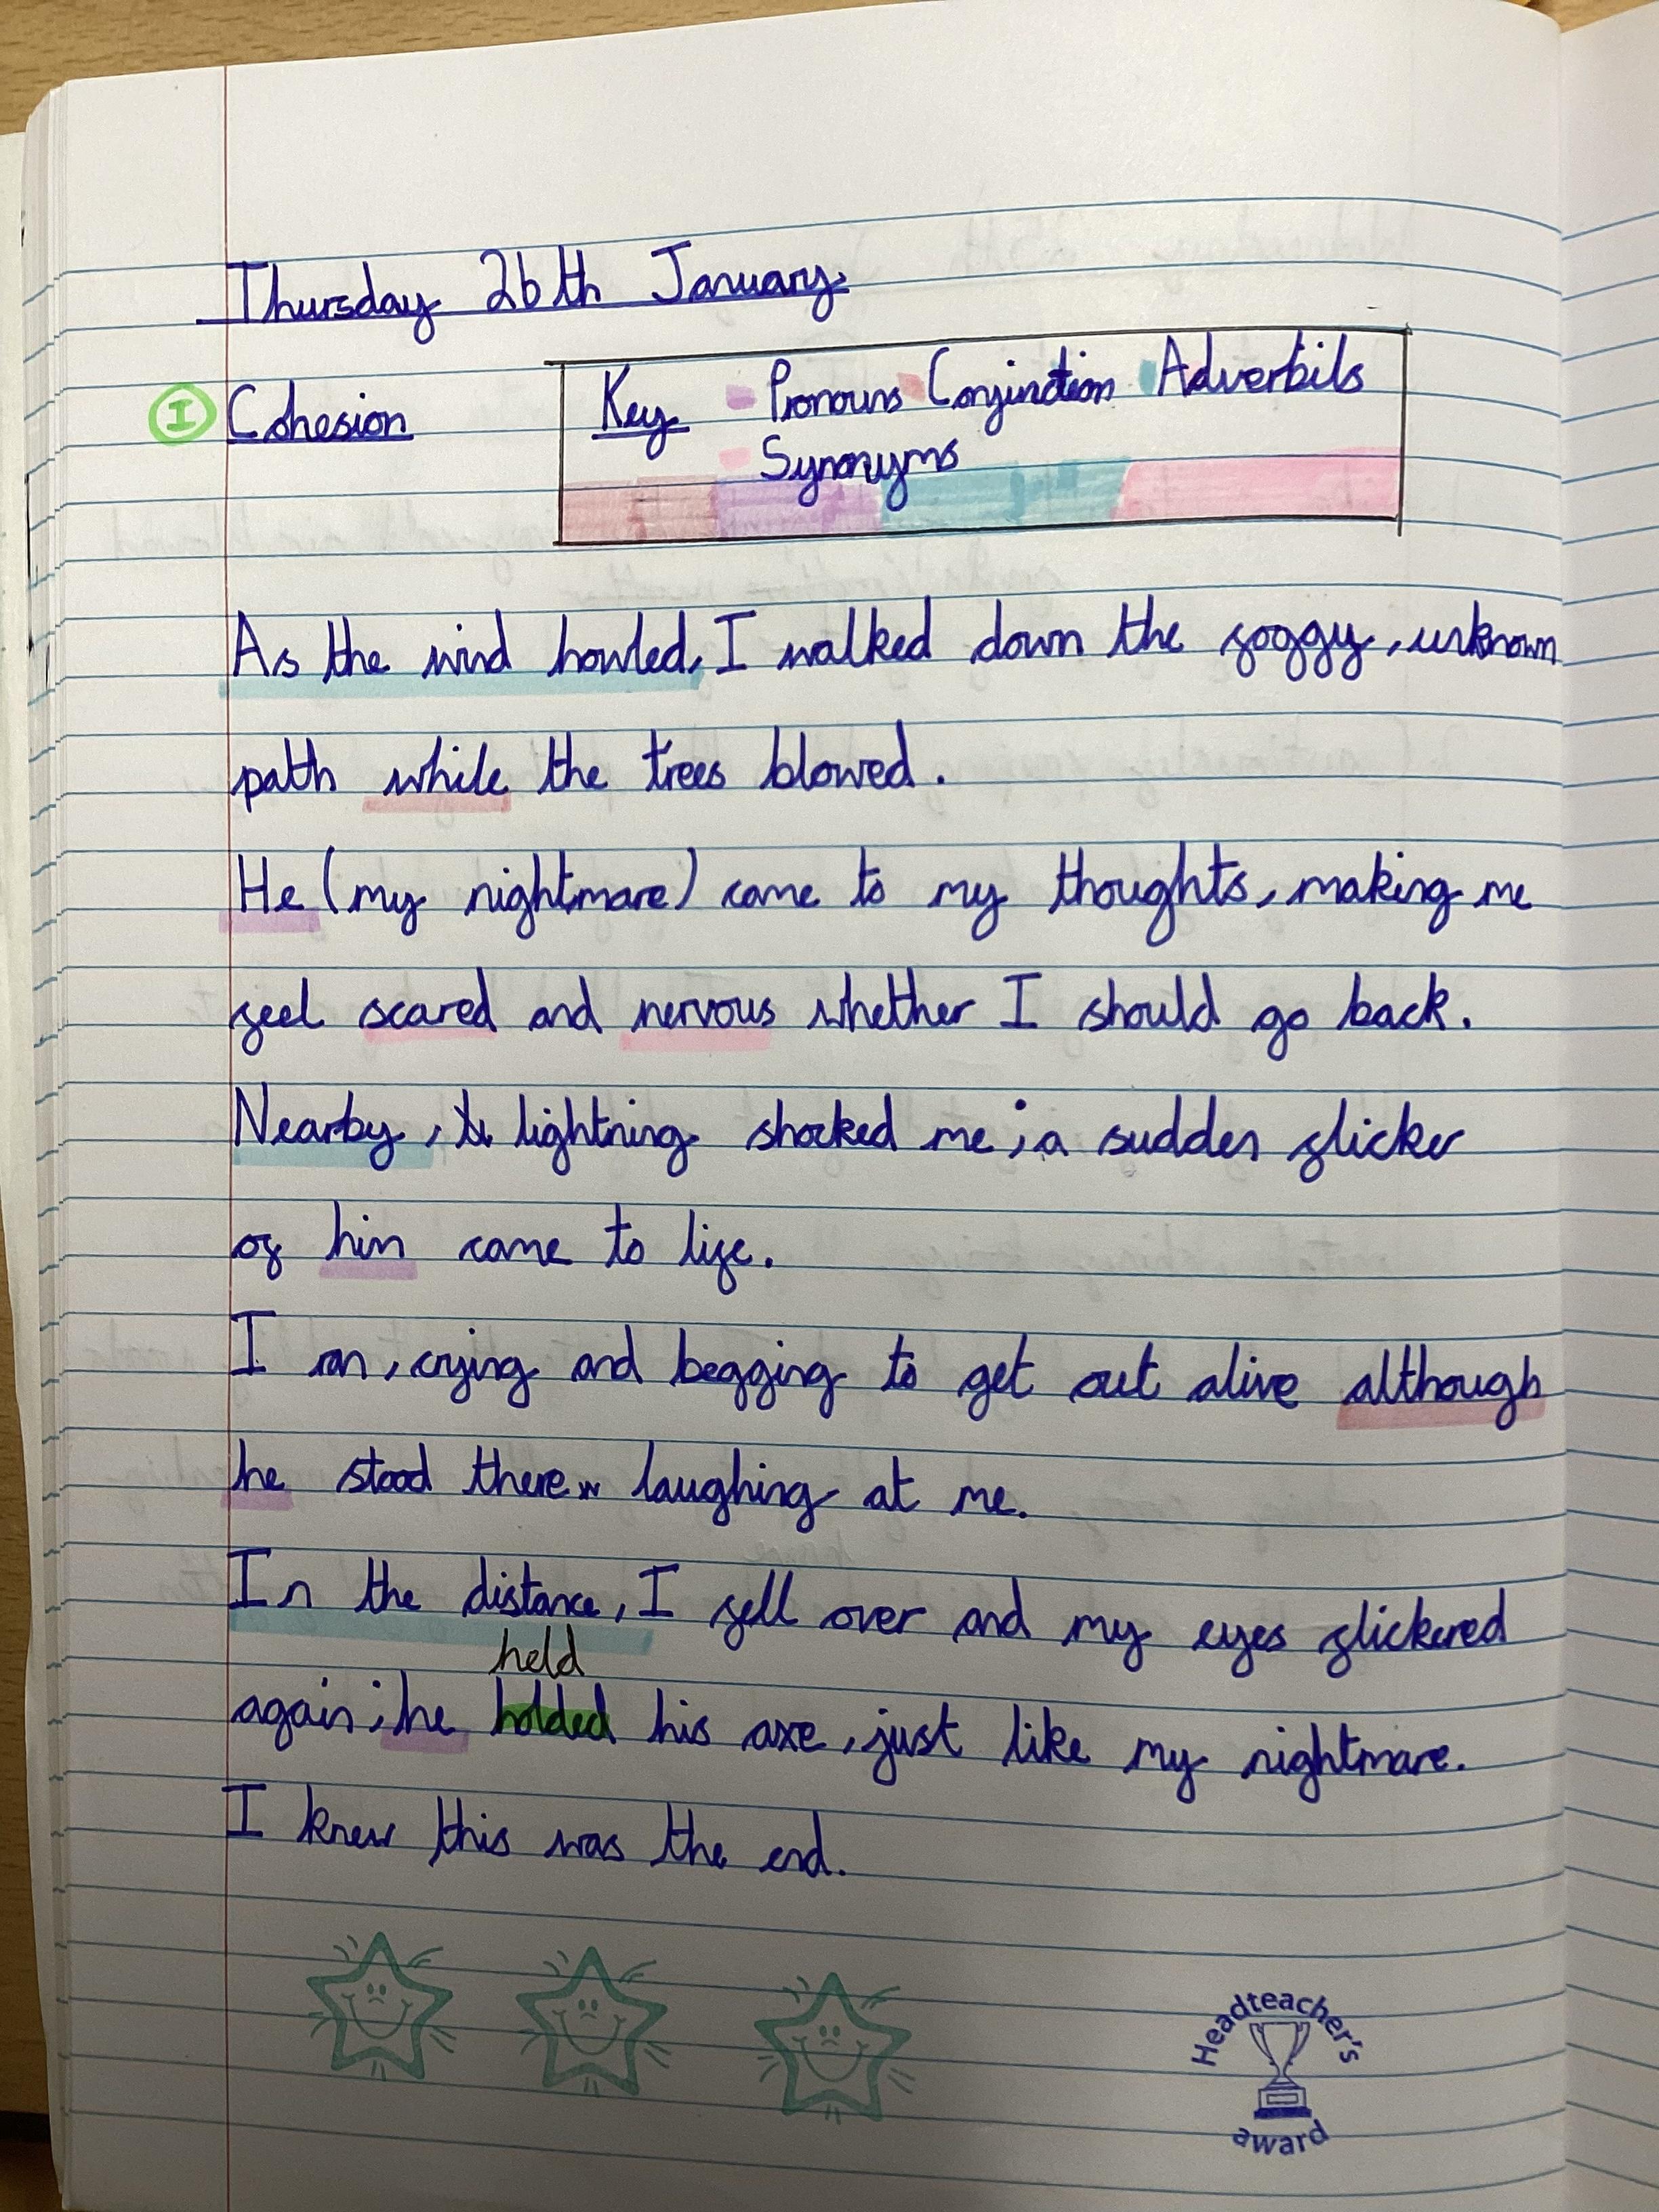 Thursday 26th January
I Cohesion
Key Pronouns Conjinction Adverbils
Synonyms
As the wind howled, I walked down the foggy, unknown
path while the trees blowed.
He (my nightmare) came to my thoughts, making me
feel scared and nervous whether I should go back.
Nearby, lightning shocked me; a sudden flicker
of him came to life.
I ran, crying and begging to get out alive although
he stood there laughing at me.
In the distance, I fell over and my eyes flickered
held
again; he holded his axe, just like my nightmare.
I knew this was the end.
Headteacher's
award